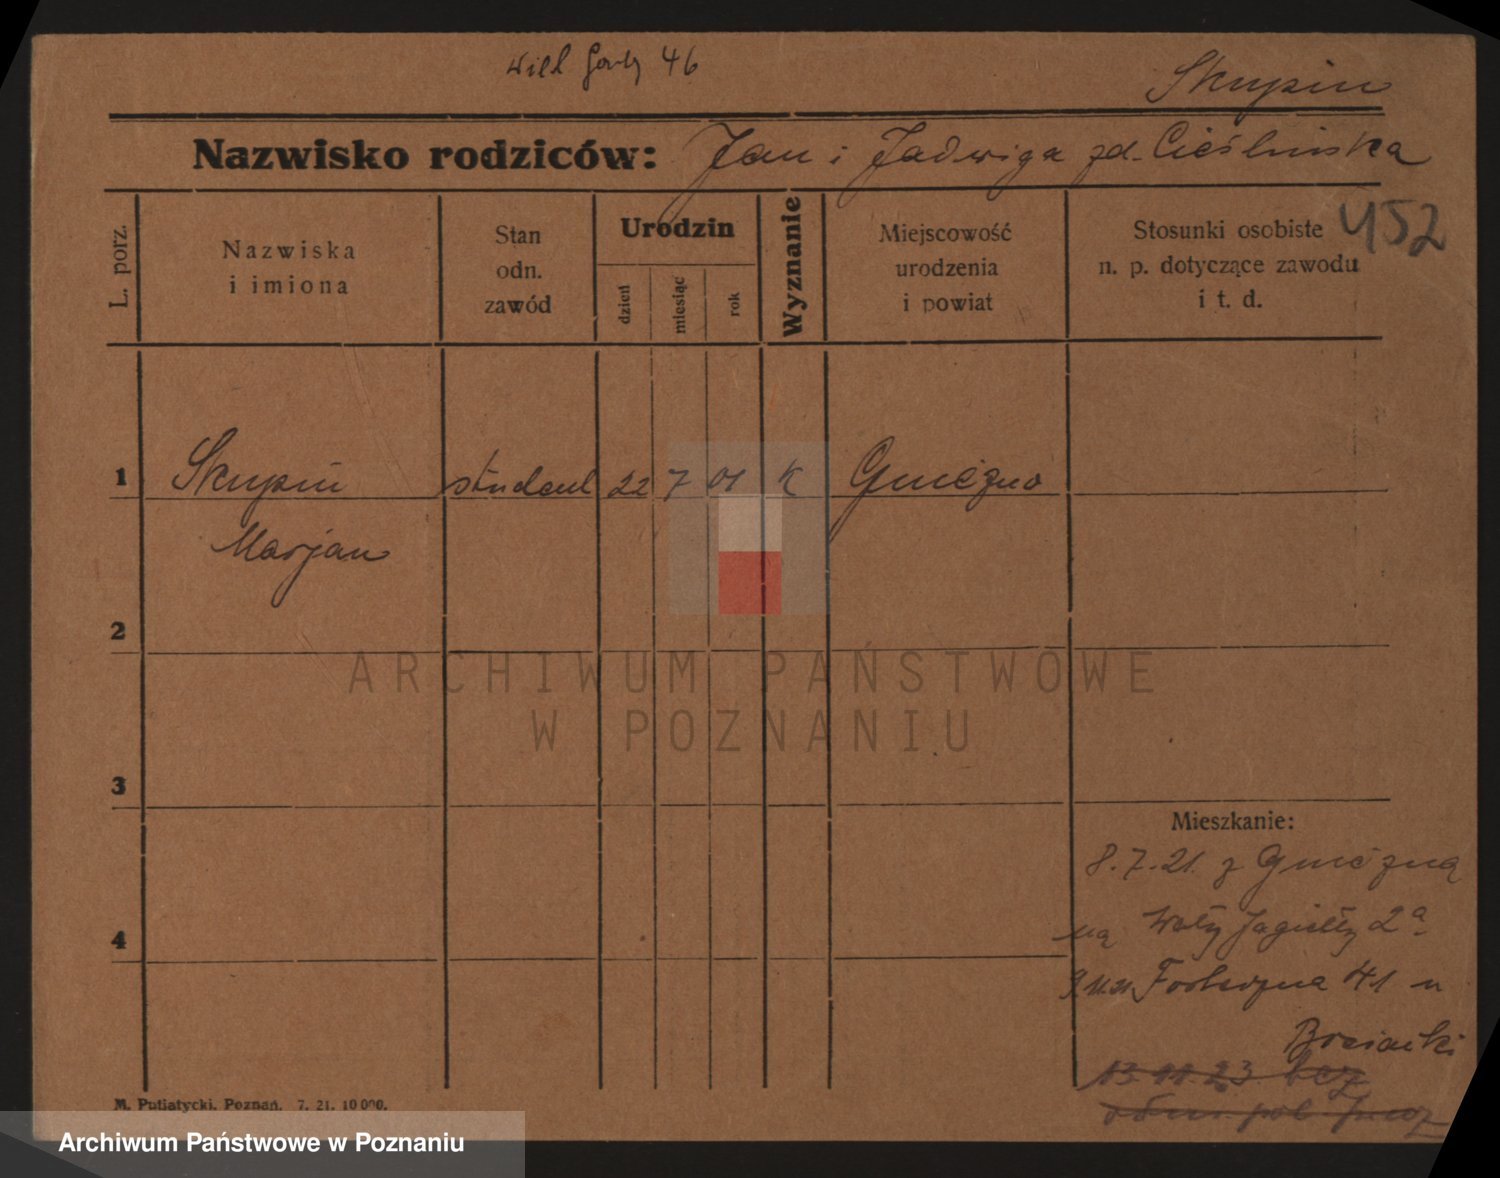 Wielk Garb. 46
Skupin
Nazwisko rodziców: Jan i Jadwiga zd. Cieślińska
452
L. porz.
Nazwiska i imiona
Stan odn. zawód
Urodzin
dzień
miesiąc
rok
Wyznanie
Miejscowość urodzenia i powiat
Stosunki osobiste n. p. dotyczące zawodu i t. d.
1 Skupin student 22 7 01 K Gniezno
Marjan
2
3
4
Mieszkanie:
8.7.21. z Gniezna
na Wały Jagiełły 2a
Forteczna 41 u
13.11.23 bez
M. Putiatycki, Poznań. 7. 21. 10 000.
ARCHIWUM PAŃSTWOWE
W POZNANIU
Archiwum Państwowe w Poznaniu